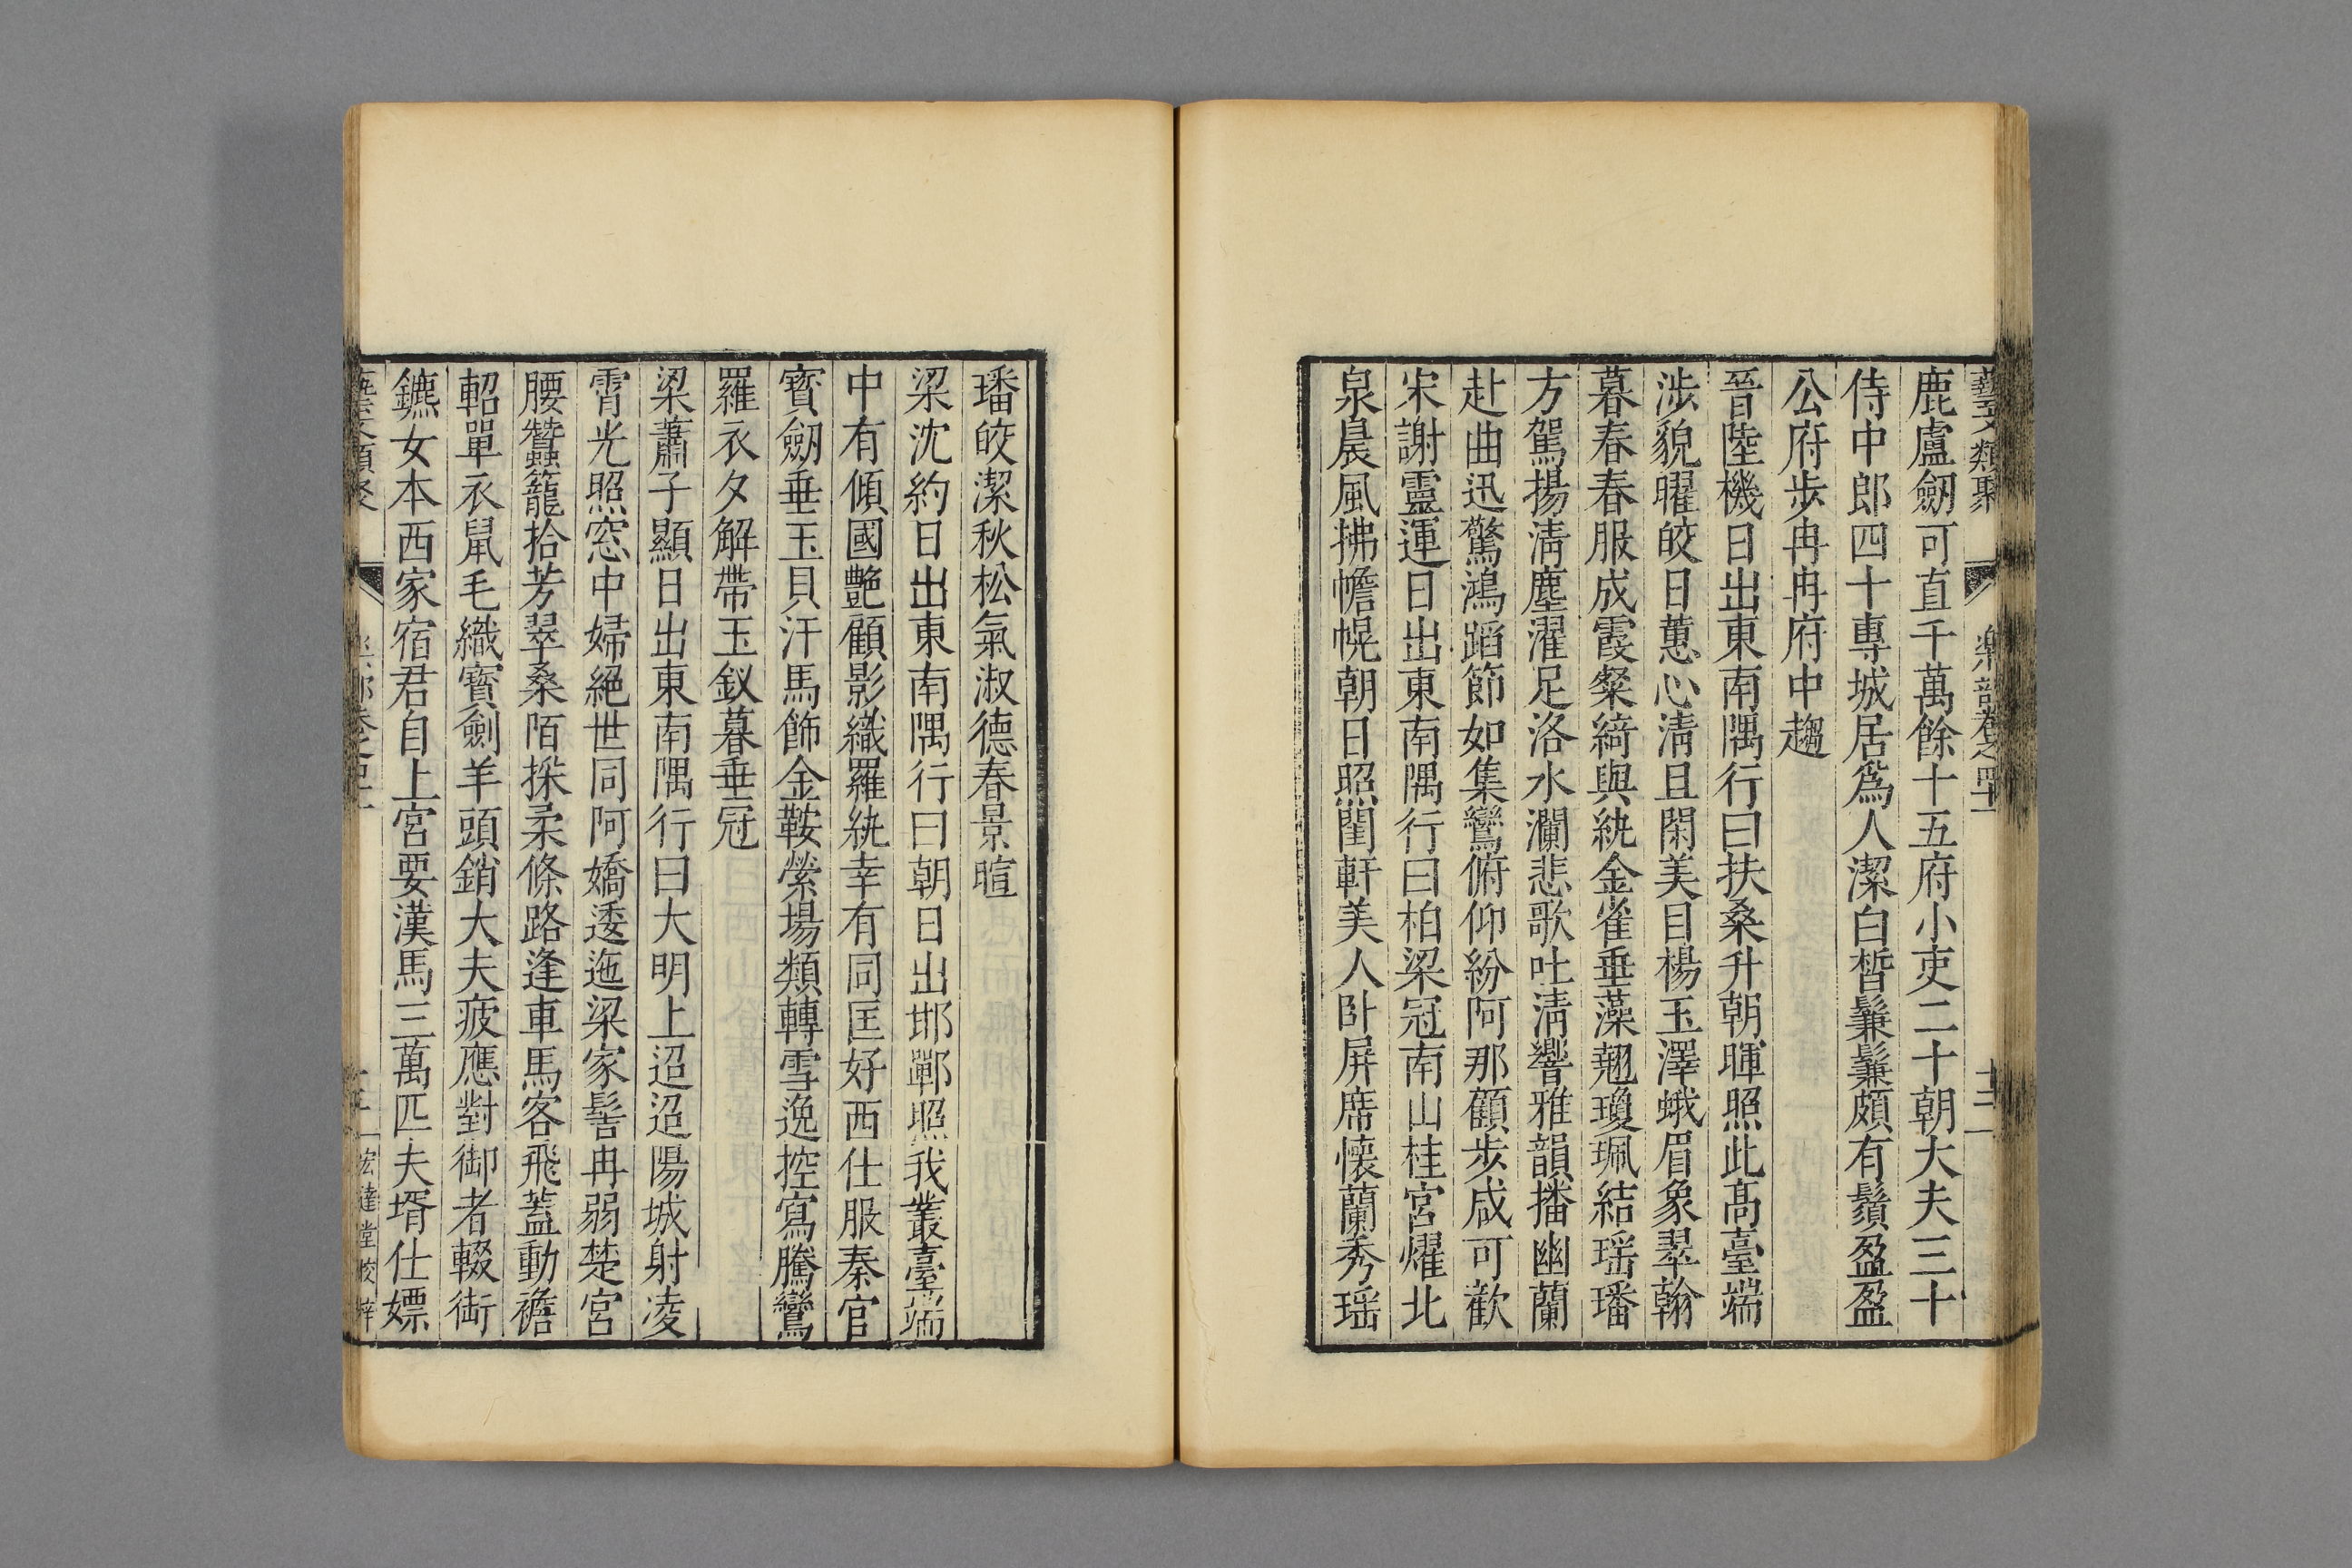 藝文類聚 樂部卷之四十一 十三
鹿盧劒可直千萬餘十五府小吏二十朝大夫三十
侍中郎四十專城居爲人潔白晳鬑鬑頗有鬚盈盈
公府步冉冉府中趨
晉陸機日出東南隅行曰扶桑升朝暉照此高臺端
涉貌曜皎日蕙心清且閑美目楊玉澤蛾眉象翠翰
暮春春服成霞粲綺與紈金雀垂藻翹瓊珮結瑶璠
方駕揚清塵濯足洛水瀾悲歌吐清響雅韻播幽蘭
赴曲迅驚鴻蹈節如集鸞俯仰紛阿那顧步咸可歡
宋謝靈運日出東南隅行曰柏梁冠南山桂宮燿北
泉晨風拂幨幌朝日照閨軒美人卧屏席懷蘭秀瑶
璠皎潔秋松氣淑德春景暄
梁沈約日出東南隅行曰朝日出邯鄲照我叢臺端
中有傾國艶顧影織羅紈幸有同匡好西仕服秦官
寳劒垂玉貝汗馬飾金鞍縈場類轉雪逸控寫騰鸞
羅衣夕解帶玉釵暮垂冠
梁蕭子顯日出東南隅行曰大明上迢迢陽城射凌
霄光照窓中婦絕世同阿嬌逶迤梁家髻冉弱楚宮
腰蠶籠拾芳翠桑陌採柔條路逢車馬客飛蓋動襜
軺單衣鼠毛織寳劍羊頭銷大夫疲應對御者輟銜
鑣女本西家宿君自上宮要漢馬三萬匹夫壻仕嫖
宏達堂校梓